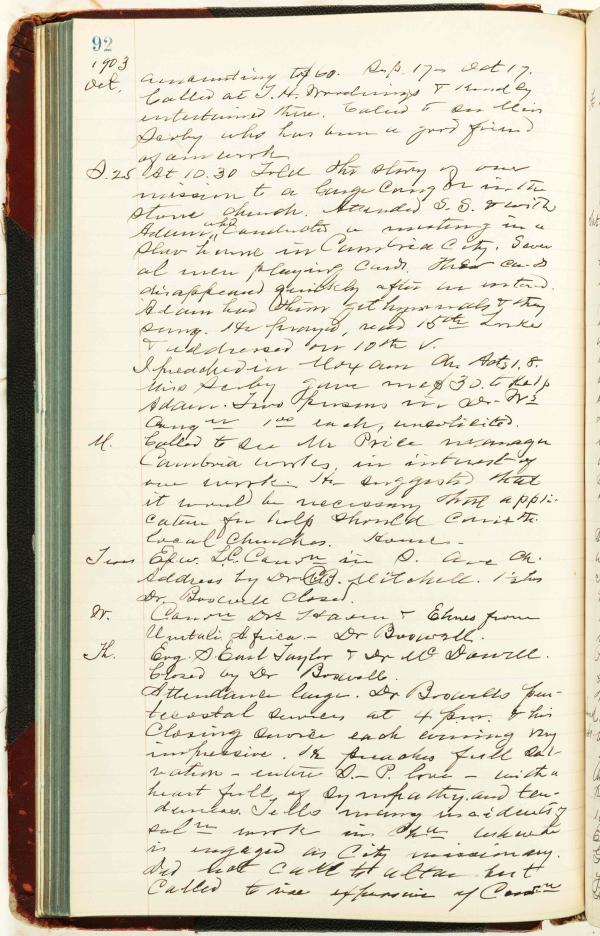 92
1903
Oct. amounting to $60. Sep. 17 - Oct 17.
Called at T. H. & kindly
entertained there. Called to see Miss
who has been a good friend
of our work
S. 25 At 10.30 Told the story of our
mission to a large Cong'n in the
stone church. Attended S. S. & with
Adam, who conducted a meeting in a
Slav house in Cambria City. Sever
al men playing cards. The cards
disappeared quickly after we entered.
Adam had them get hymnals & they
sung. He prayed, read 15th Luke
& addressed on 10th V.
I preached in Moxam Ch. Acts 1.8.
Miss gave me $30. to help
Adam. Two persons in Dr.
Cong'n 1.00 each, unsolicited.
M. Called to see Mr Price manager
Cambria works, in interest of
our work. He suggested that
it would be necessary that appli-
cation for help should come th.
local churches. Home -
Tues Epw. L. C. Con'n in S. Ave Ch.
Address by Dr C.B. Mitchell.
Dr. Boswell closed.
W. Con'n Drs & Ehnes from
Umtali Africa - Dr Boswell.
Th. Evg. S. Earl Taylor & Dr McDowell.
Closed by Dr Boswell.
Attendance large. Dr Boswells pen-
tecostal services at 4 p.m. & his
Closing service each evening very
impressive. He preaches full sal-
vation - entire S. - P. love - with a
heart full of sympathy and ten-
derness. Tells many incidents of
sal'n work in Pha where he
is engaged as City missionary.
Did not call to altar but
Called to rise expressive of